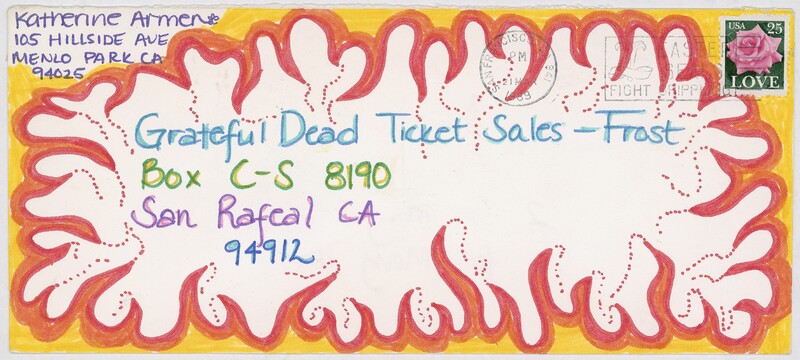 Katherine
105 HILLSIDE AVE
MENLO PARK CA
94025
SAN FRANCISCO
PM
1989
FIGHT
USA 25
LOVE
Grateful Dead Ticket Sales - Frost
Box C-S 8190
San Rafeal CA
94912